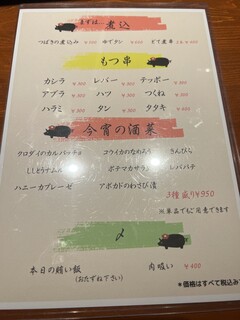 まずは… 煮込
つばきの煮込み ゆでタン どて煮串
もつ串
カシラ ¥300 レバー ¥300 テッポー ¥300
アブラ ¥300 ハツ ¥300 なつ ¥300
ハラミ ¥300 タン ¥300 タタキ ¥300
今宵の酒菜
クロダイのカルパッチョ コウイカのなめろう きんぴら
ししとうナムル ポテマカサラダ レバパテ
ハニーカプレーゼ アボカドのわさび漬
3種盛り¥950
※単品でもご用意できます
〆
本日の賄い飯 肉吸い ¥400
(おたずね下さい)
*価格はすべて税込み